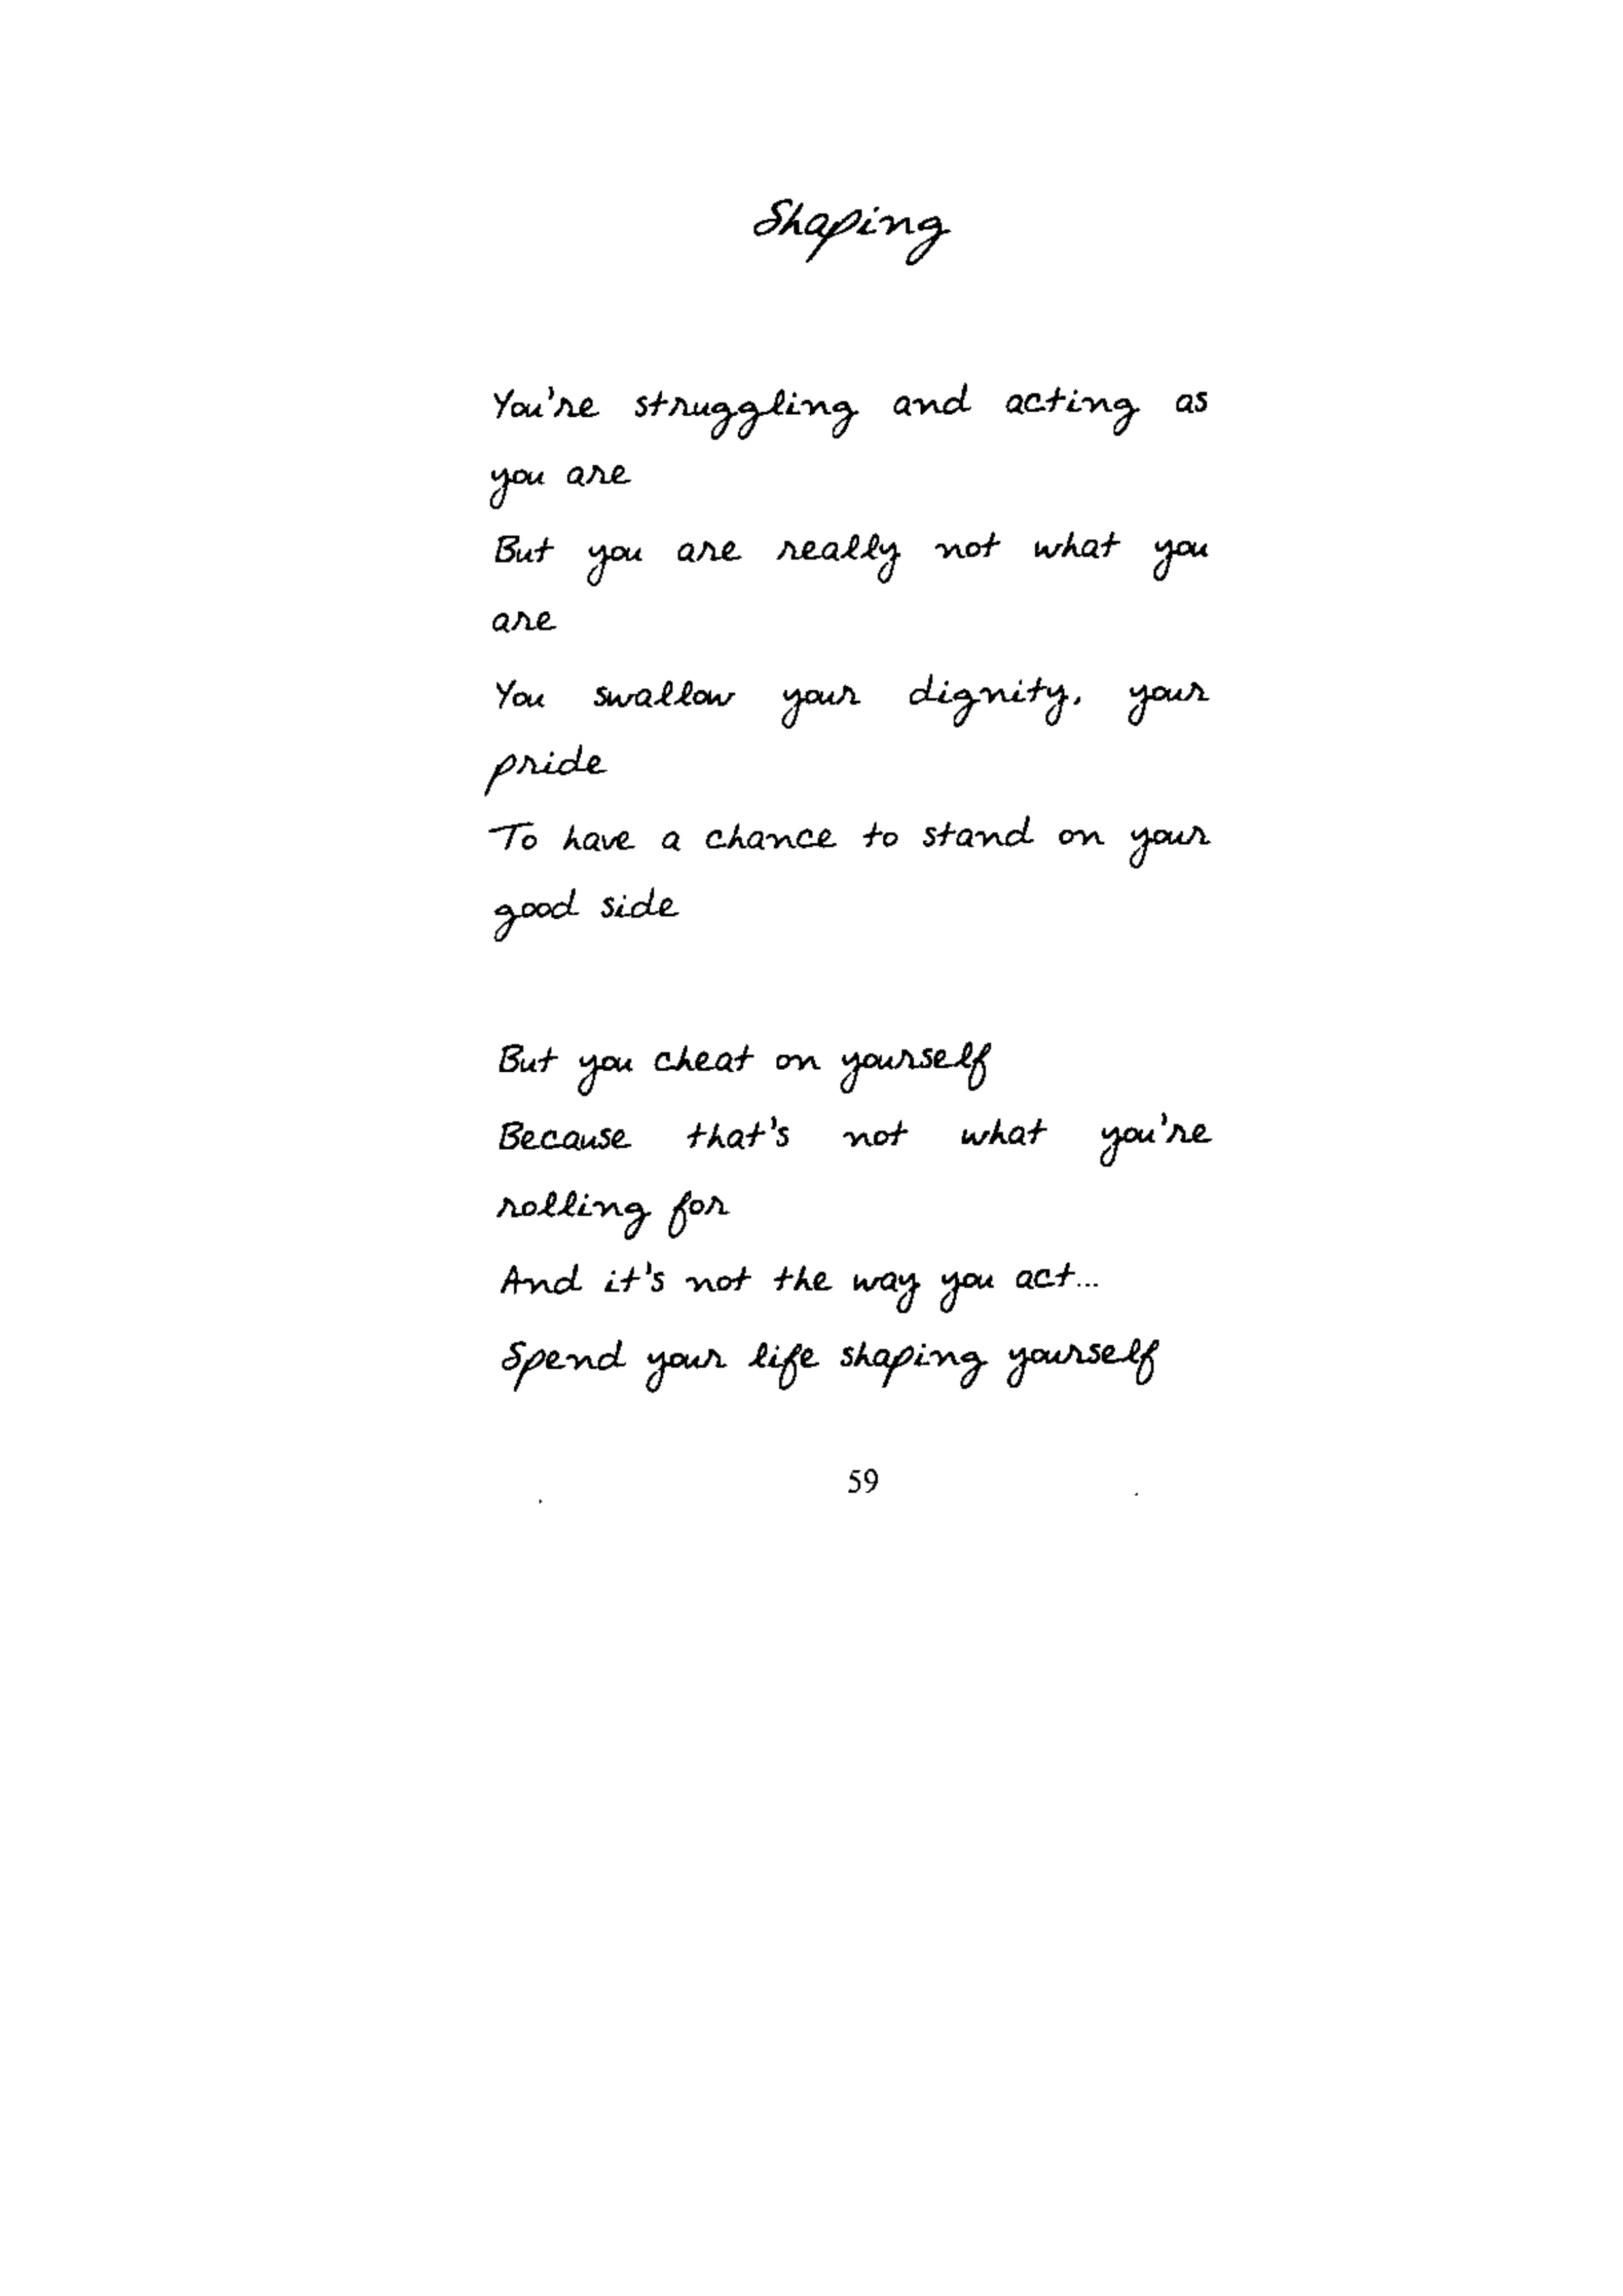 Shaping
You're struggling and acting as
you are
But you are really not what you
are
You swallow your dignity, your
pride
To have a chance to stand on your
good side
But you cheat on yourself
Because that's not what you're
rolling for
And it's not the way you act...
Spend your life shaping yourself
59